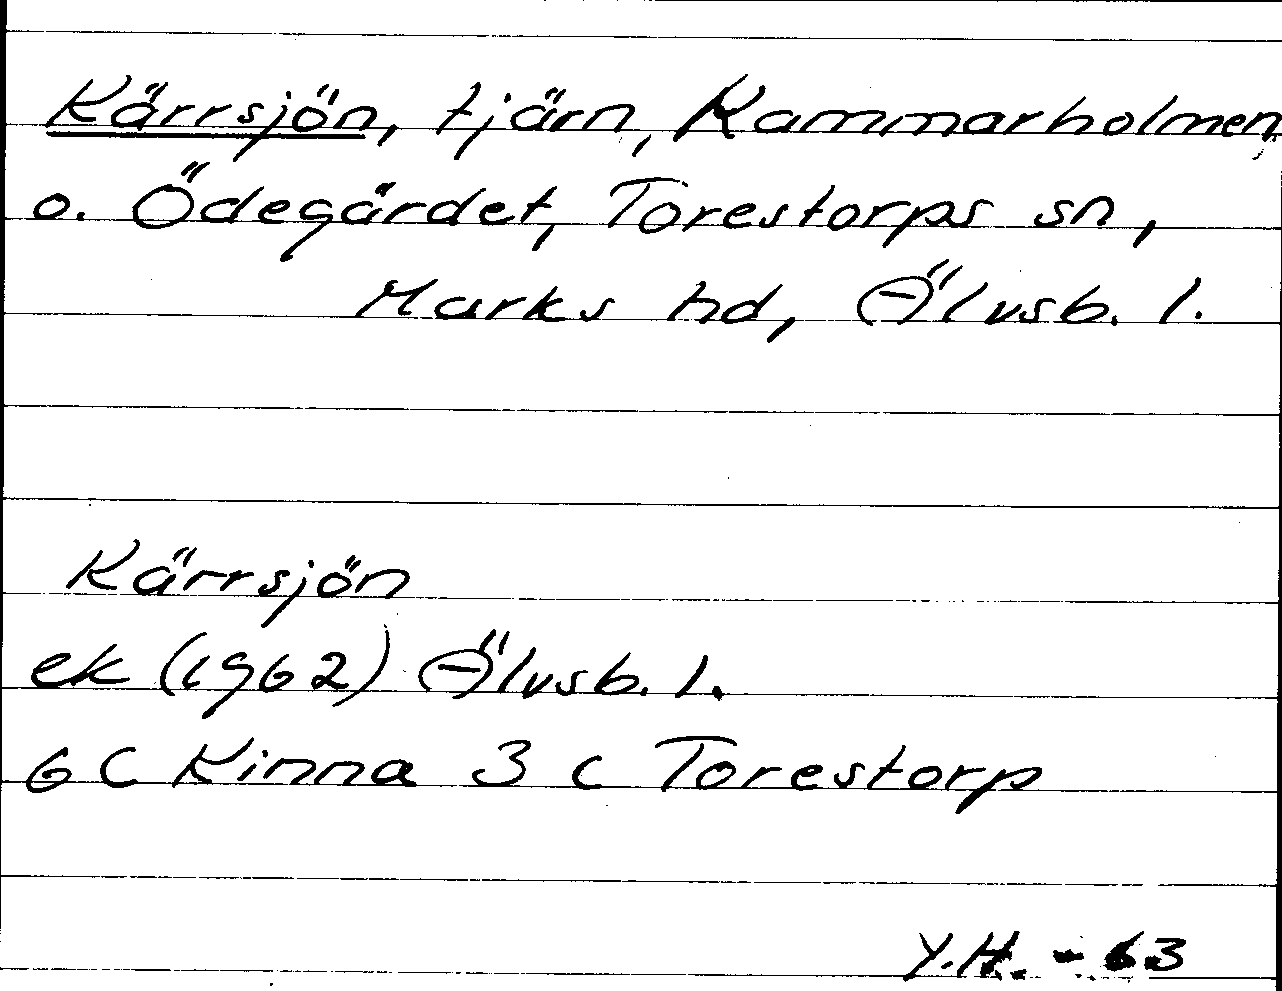 Kärrsjön, tjärn, Kammarholmen
o. Ödegärdet, Torestorps sn,
Marks hd, Älvsb. l.
Kärrsjön
ek (1962) Älvsb. l.
6 C Kinna 3 c Torestorp
Y.H. - 63